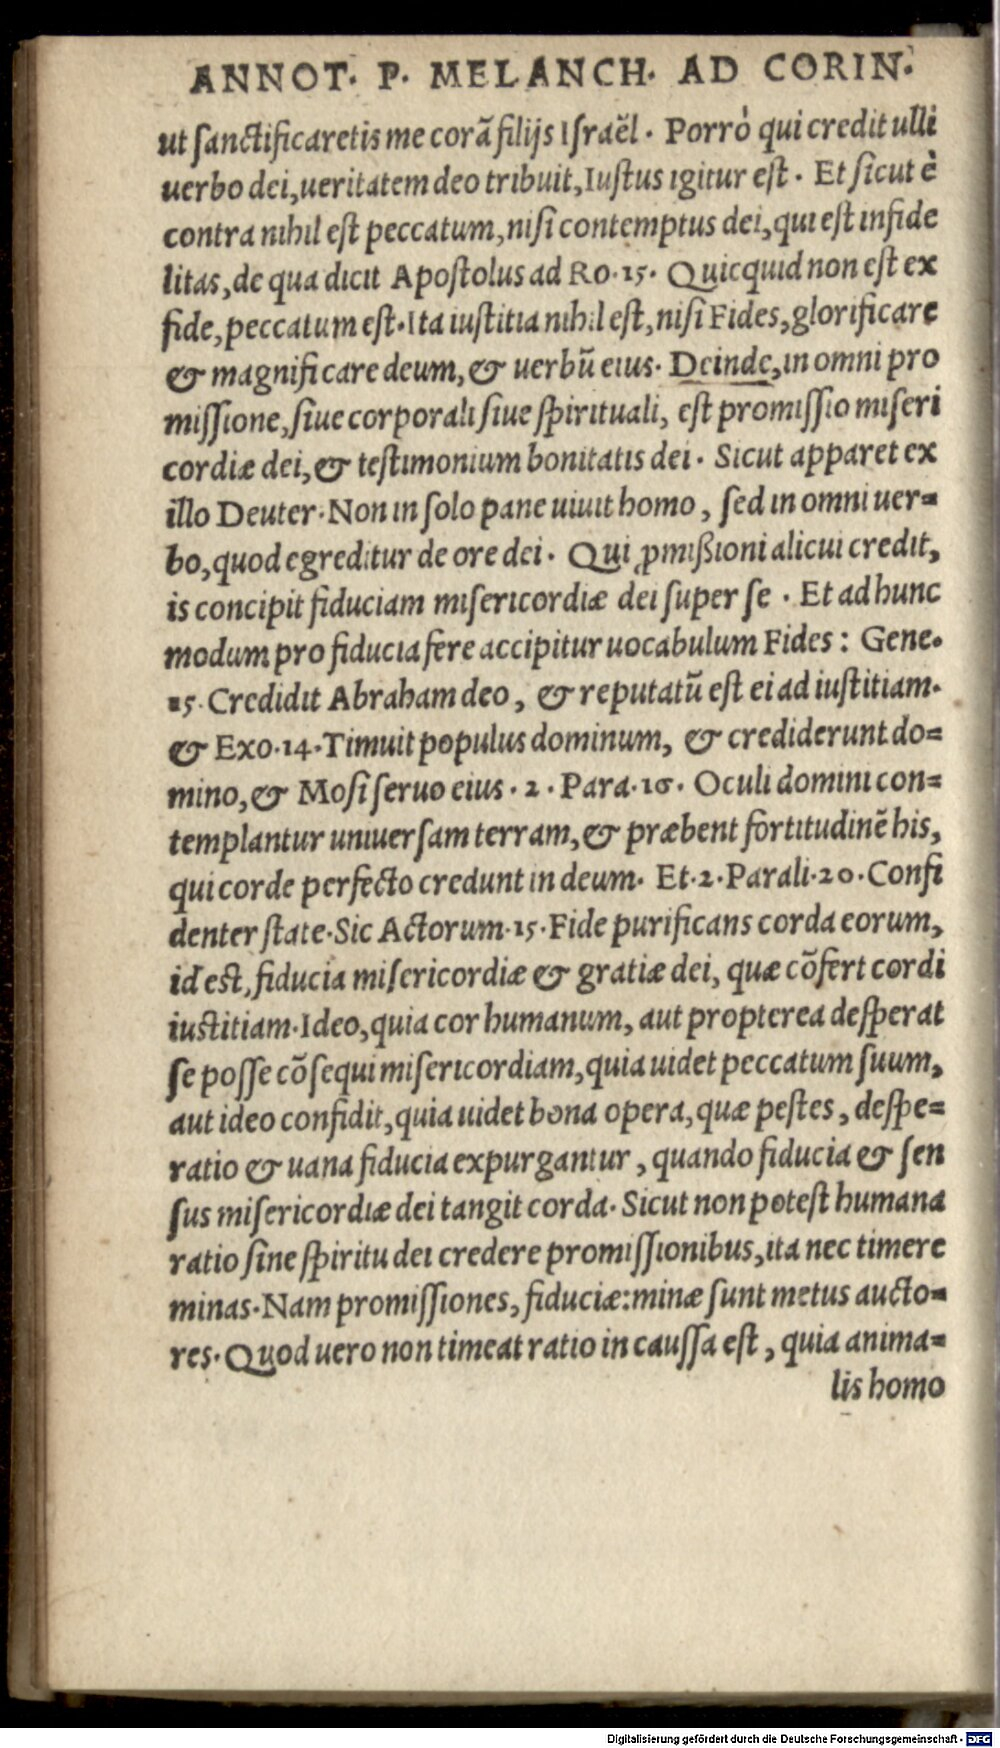 ANNOT. P. MELANCH. AD CORIN.
ut sanctificaretis me corã filijs Israël. Porrò qui credit ulli
uerbo dei, ueritatem deo tribuit, Iustus igitur est. Et sicut è
contra nihil est peccatum, nisi contemptus dei, qui est infide
litas, de qua dicit Apostolus ad Ro. 15. Quicquid non est ex
fide, peccatum est. Ita iustitia nihil est, nisi Fides, glorificare
& magnificare deum, & uerbũ eius. Deinde, in omni pro
missione, siue corporali siue spirituali, est promissio miseri
cordiæ dei, & testimonium bonitatis dei. Sicut apparet ex
illo Deuter. Non in solo pane uiuit homo, sed in omni uer=
bo, quod egreditur de ore dei. Qui ꝓmißioni alicui credit,
is concipit fiduciam misericordiæ dei super se. Et ad hunc
modum pro fiducia fere accipitur uocabulum Fides: Gene.
15. Credidit Abraham deo, & reputatũ est ei ad iustitiam.
& Exo. 14. Timuit populus dominum, & crediderunt do=
mino, & Mosi seruo eius. 2. Para. 16. Oculi domini con=
templantur uniuersam terram, & præbent fortitudinẽ his,
qui corde perfecto credunt in deum. Et. 2. Parali. 20. Confi
denter state. Sic Actorum. 15. Fide purificans corda eorum,
id est, fiducia misericordiæ & gratiæ dei, quæ cõfert cordi
iustitiam. Ideo, quia cor humanum, aut propterea desperat
se posse cõsequi misericordiam, quia uidet peccatum suum,
aut ideo confidit, quia uidet bona opera, quæ pestes, despe=
ratio & uana fiducia expurgantur, quando fiducia & sen
sus misericordiæ dei tangit corda. Sicut non potest humana
ratio sine spiritu dei credere promissionibus, ita nec timere
minas. Nam promissiones, fiduciæ: minæ sunt metus aucto=
res. Quod uero non timeat ratio in caussa est, quia anima=
lis homo
Digitalisierung gefördert durch die Deutsche Forschungsgemeinschaft - DFG